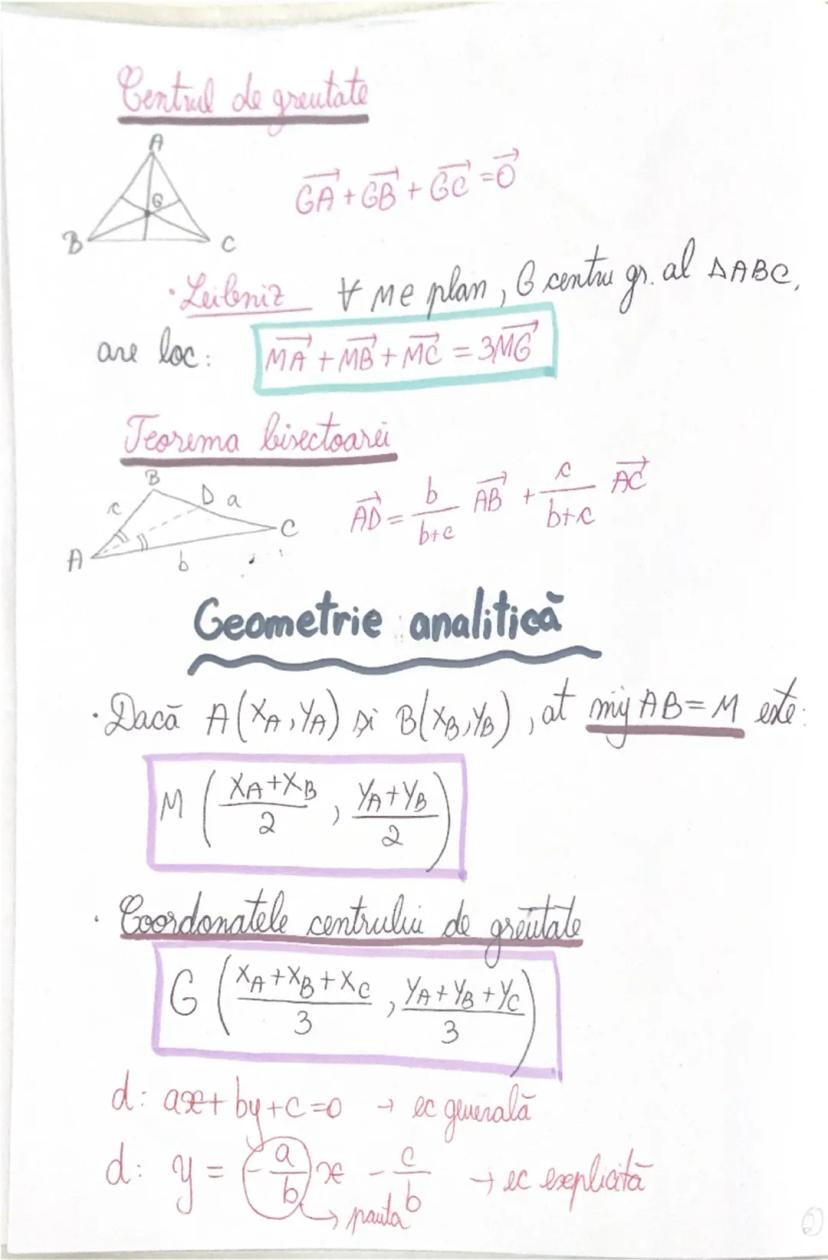 Centrul de greutate
A
G
B C
$\overrightarrow{GA} + \overrightarrow{GB} + \overrightarrow{GC} = \overrightarrow{O}$
· Leibniz ∀ M ∈ plan, G centru gr. al ΔABC,
are loc: $\overrightarrow{MA} + \overrightarrow{MB} + \overrightarrow{MC} = 3\overrightarrow{MG}$
Teorema bisectoarei
B
c D a
C
A b
$\overrightarrow{AD} = \frac{b}{b+c} \overrightarrow{AB} + \frac{c}{b+c} \overrightarrow{AC}$
Geometrie analitică
· Dacă A(x_A, y_A) și B(x_B, y_B), at mij AB = M este:
$M \left( \frac{x_A + x_B}{2}, \frac{y_A + y_B}{2} \right)$
· Coordonatele centrului de greutate
$G \left( \frac{x_A + x_B + x_C}{3}, \frac{y_A + y_B + y_C}{3} \right)$
d: ax + by + c = 0 → ec generală
d: $y = -\frac{a}{b}x - \frac{c}{b}$ → ec explicită
→ panta